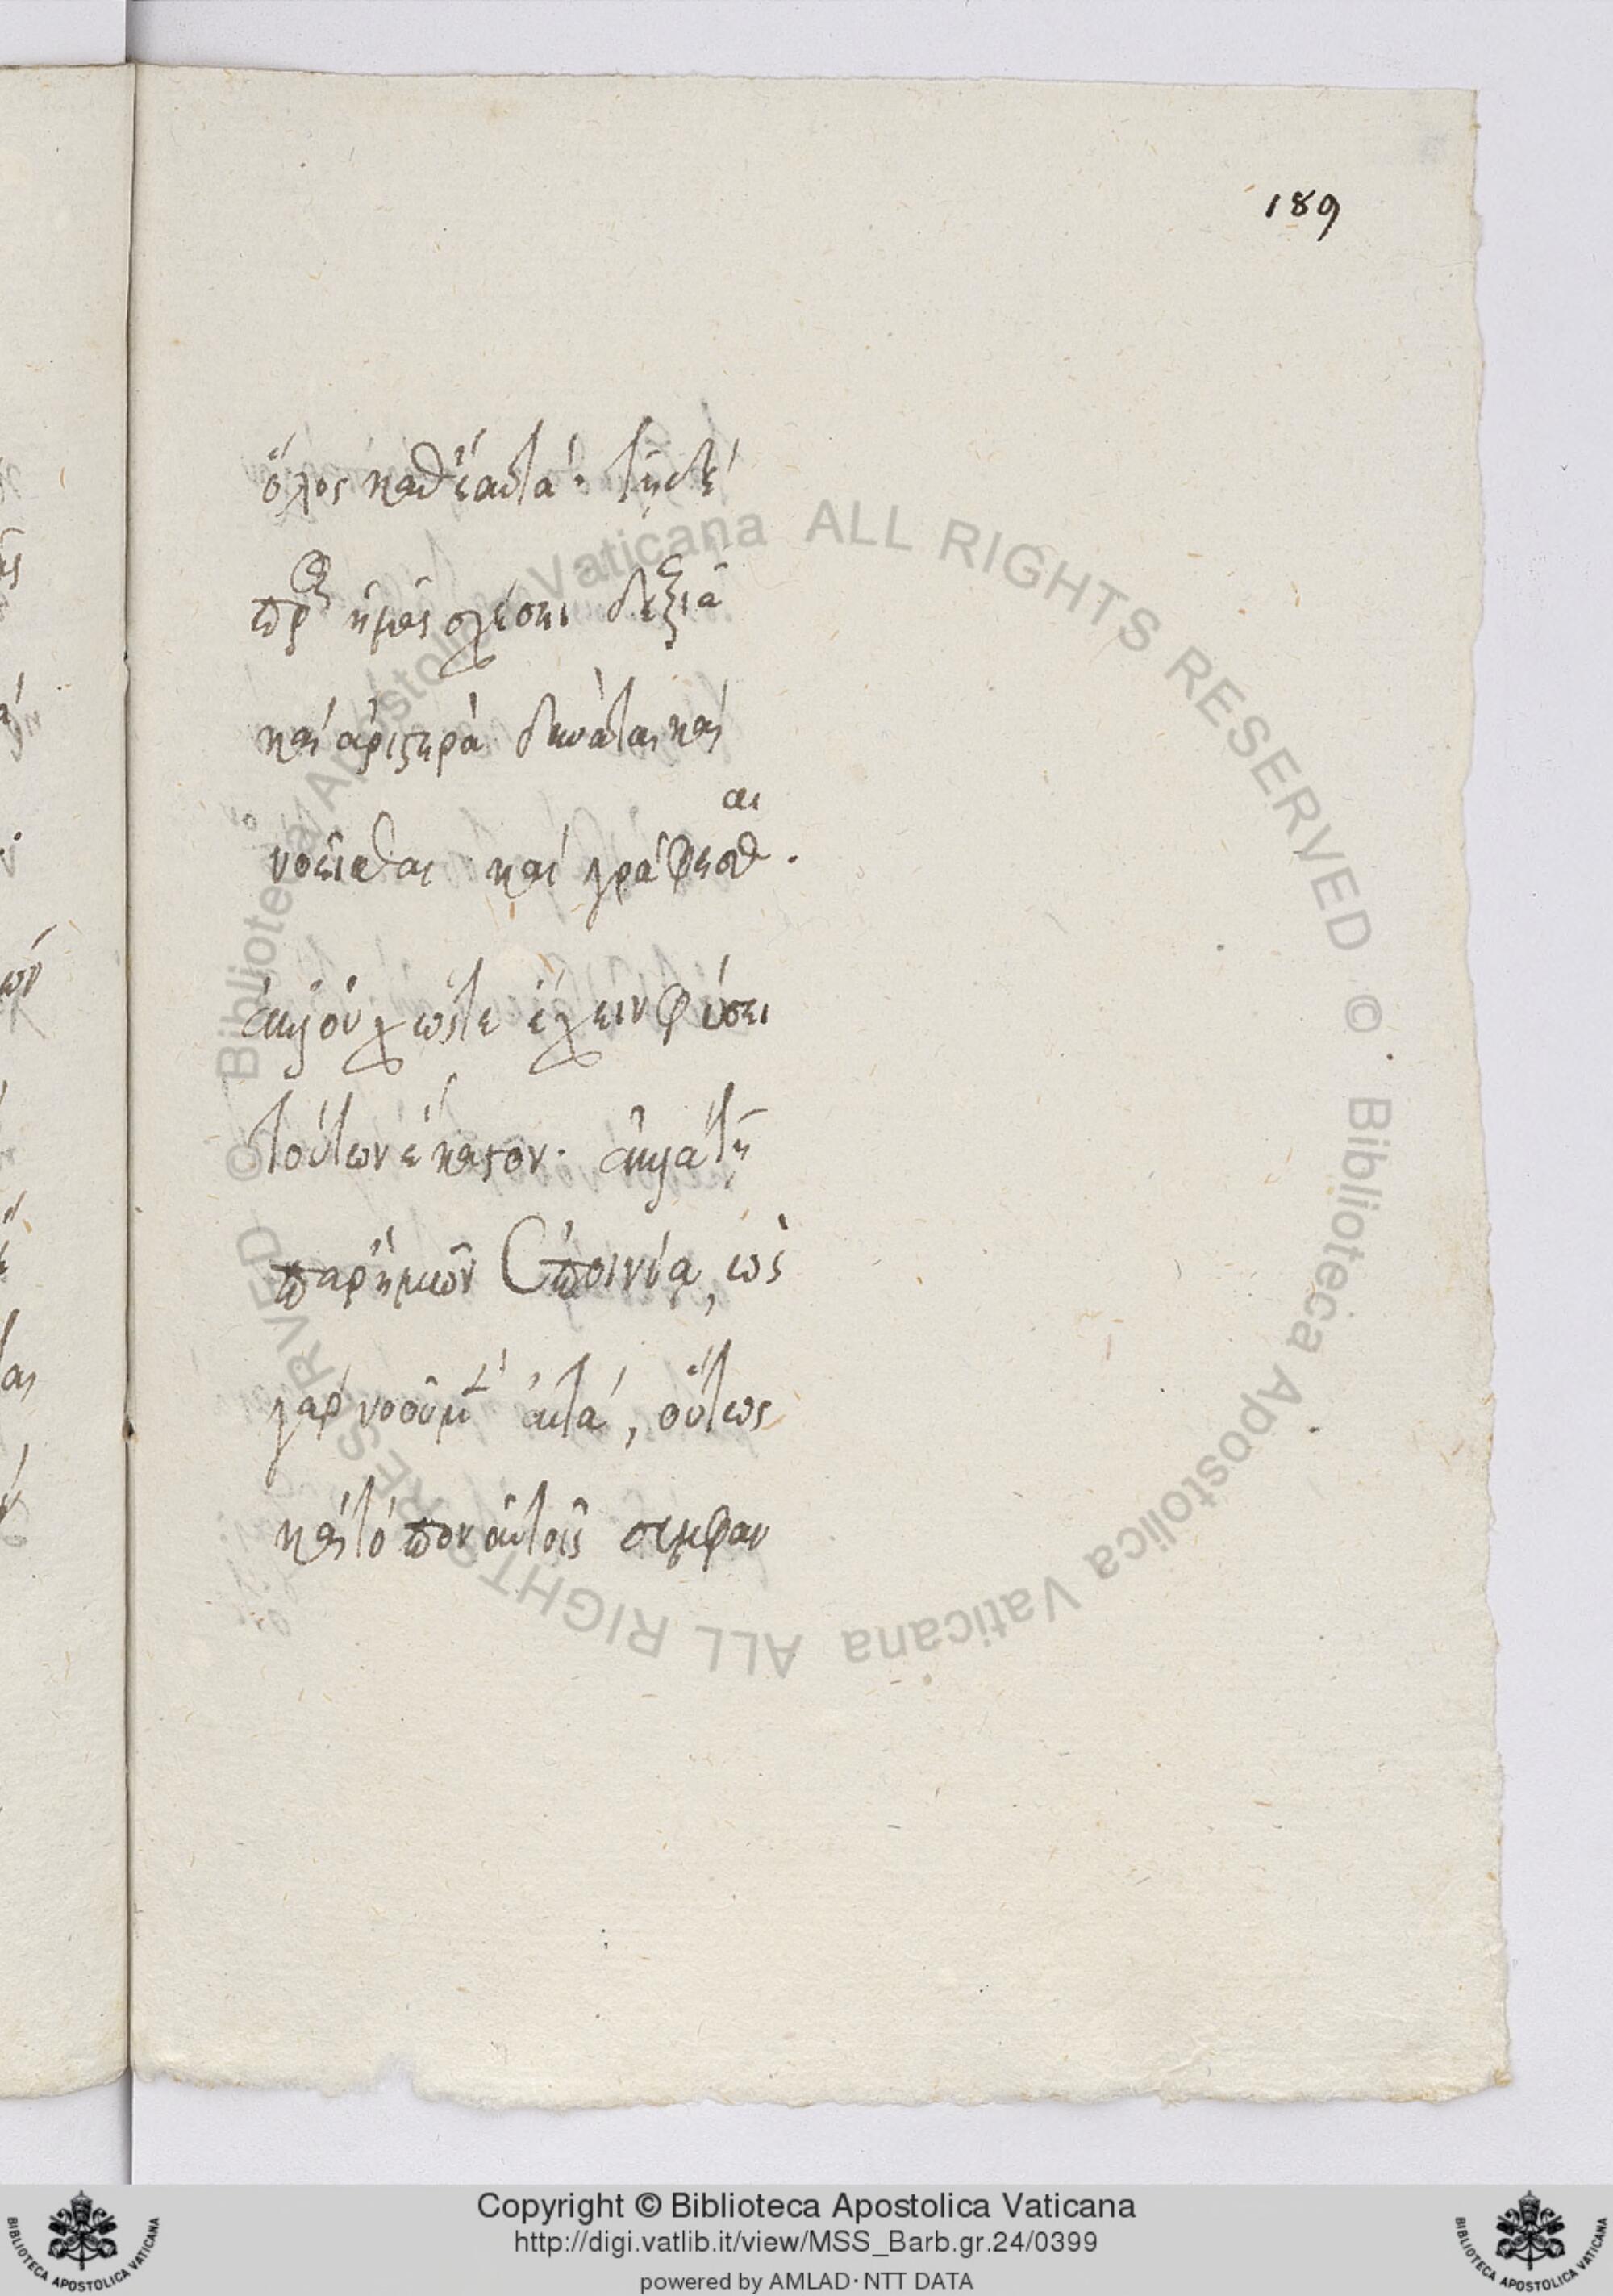 189
ὅλος καθ' ἑαυτά· τῇ δὲ
πρὸς ἡμᾶς σχέσει δεξιὰ
καὶ ἀριστερὰ δύναται καὶ
νοεῖσθαι καὶ γράφεσθαι.
ἀλλ' οὐχ ὥστε ἔχειν φύσει
τούτων ἕκαστον· ἀλλὰ τῇ
παρ' ἡμῶν ἐπινοίᾳ, ὡς
γὰρ νοοῦμεν αὐτά, οὕτως
καὶ τόπον αὐτοῖς
Copyright © Biblioteca Apostolica Vaticana
http://digi.vatlib.it/view/MSS_Barb.gr.24/0399
powered by AMLAD · NTT DATA
BIBLIOTECA APOSTOLICA VATICANA
BIBLIOTECA APOSTOLICA VATICANA
© Biblioteca Apostolica Vaticana ALL RIGHTS RESERVED
© Biblioteca Apostolica Vaticana ALL RIGHTS RESERVED